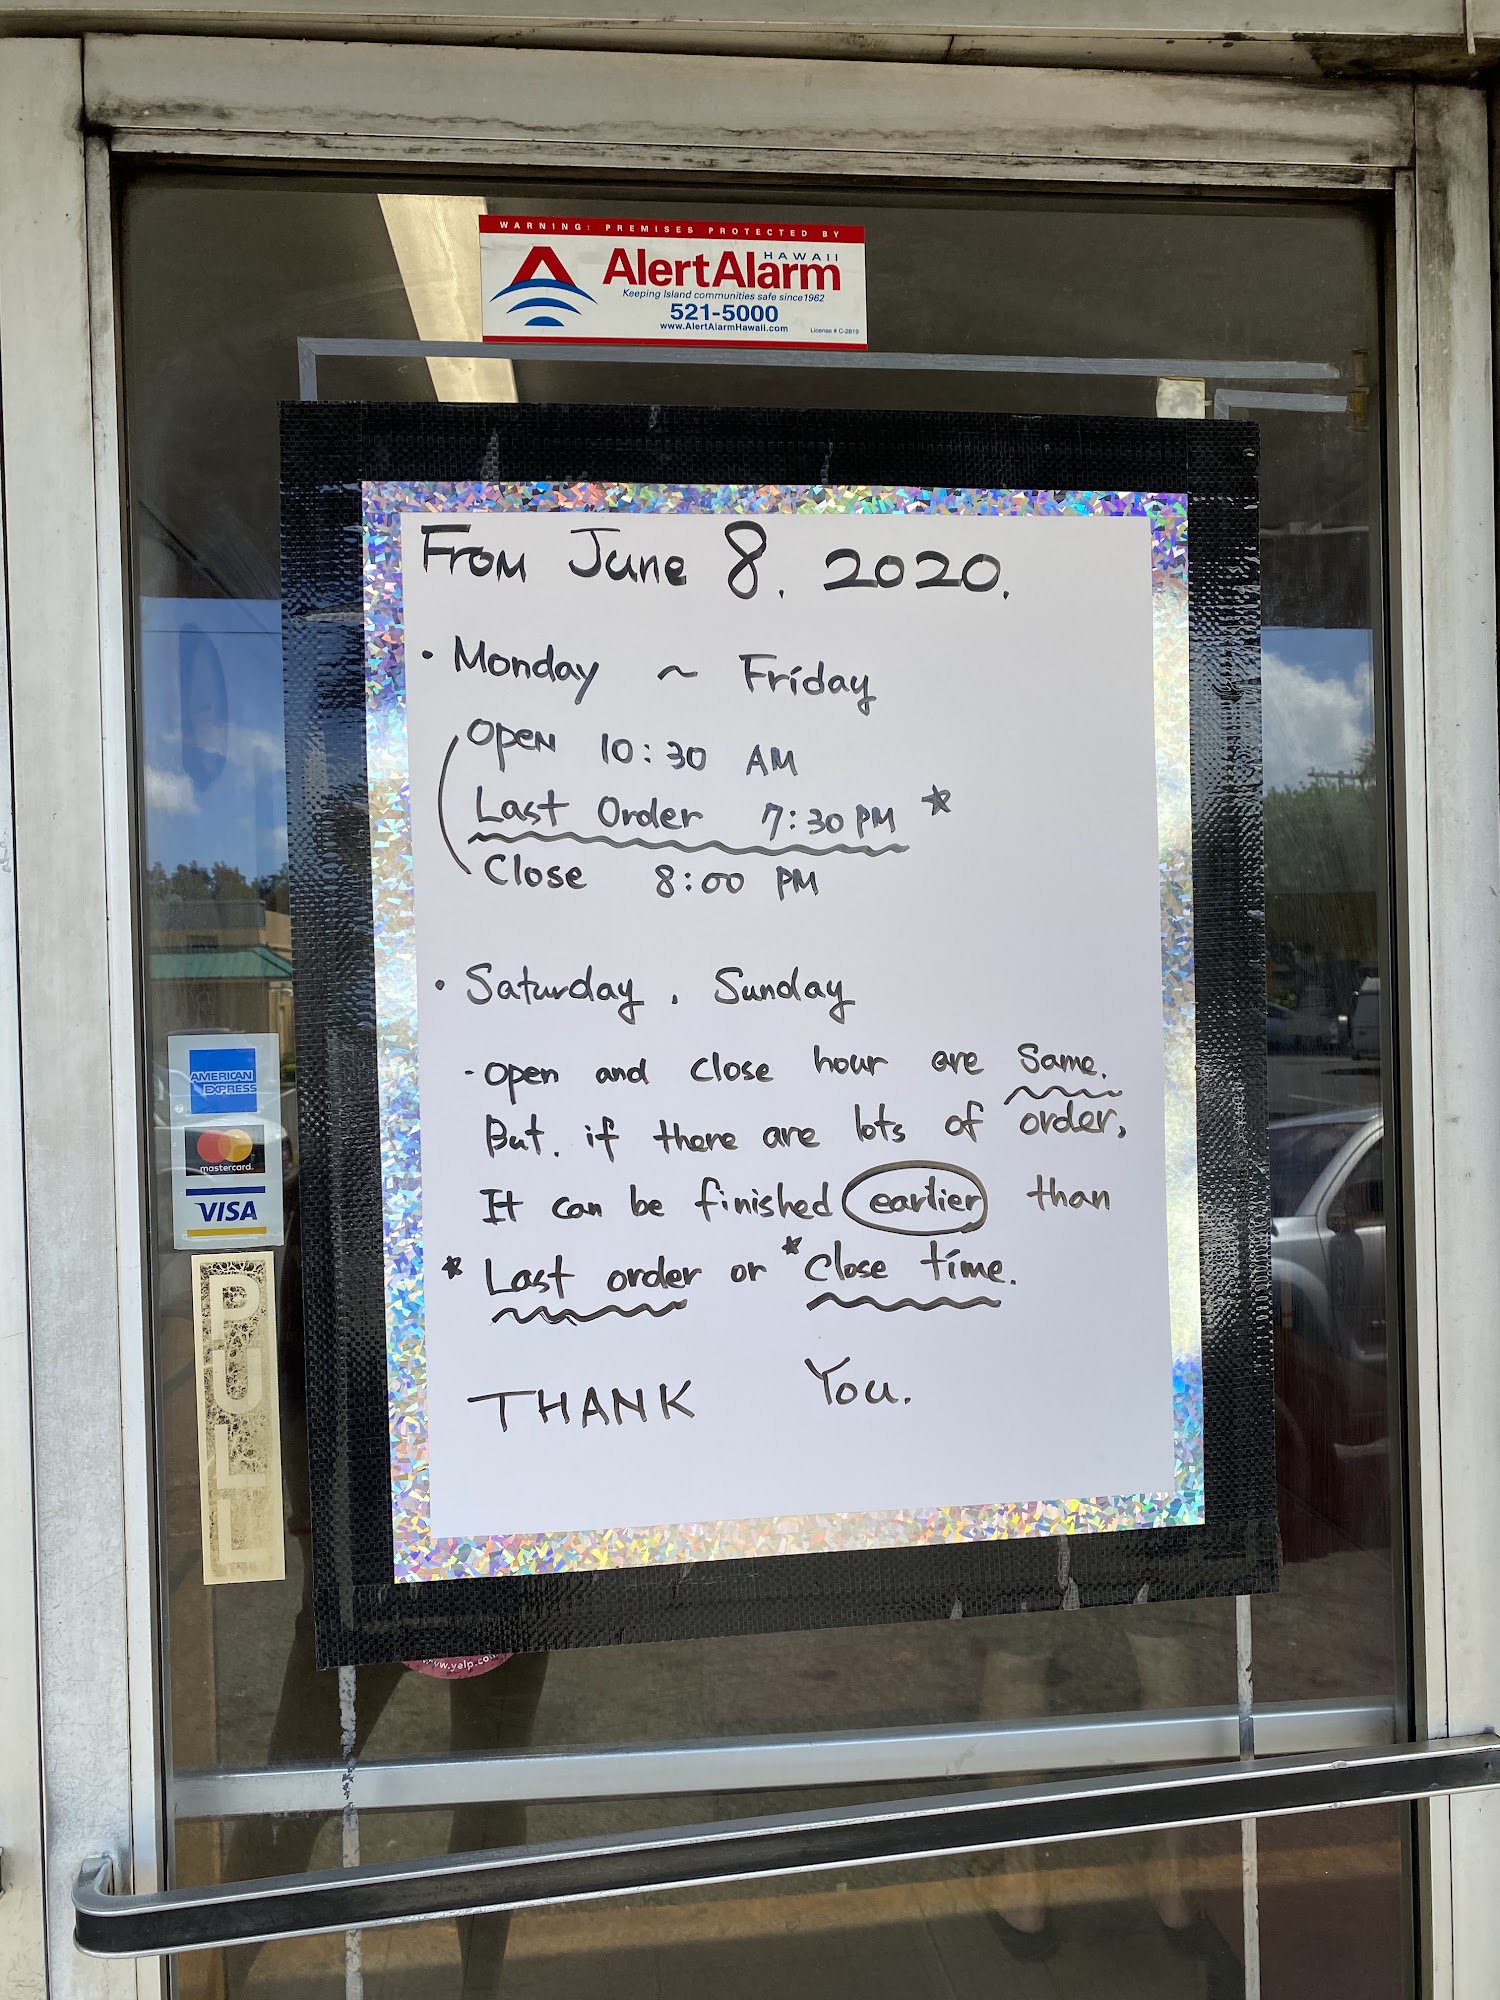 WARNING: PREMISES PROTECTED BY
HAWAII
AlertAlarm
Keeping Island communities safe since 1962
521-5000
www.AlertAlarmHawaii.com
License # C-2819
From June 8. 2020.
• Monday ~ Friday
Open 10:30 AM
Last Order 7:30 PM ☆
Close 8:00 PM
• Saturday. Sunday
- Open and Close hour are Same.
But. if there are lots of order,
It can be finished earlier than
☆ Last order or ☆ Close time.
THANK You.
AMERICAN EXPRESS
mastercard.
VISA
PULL
www.yelp.co